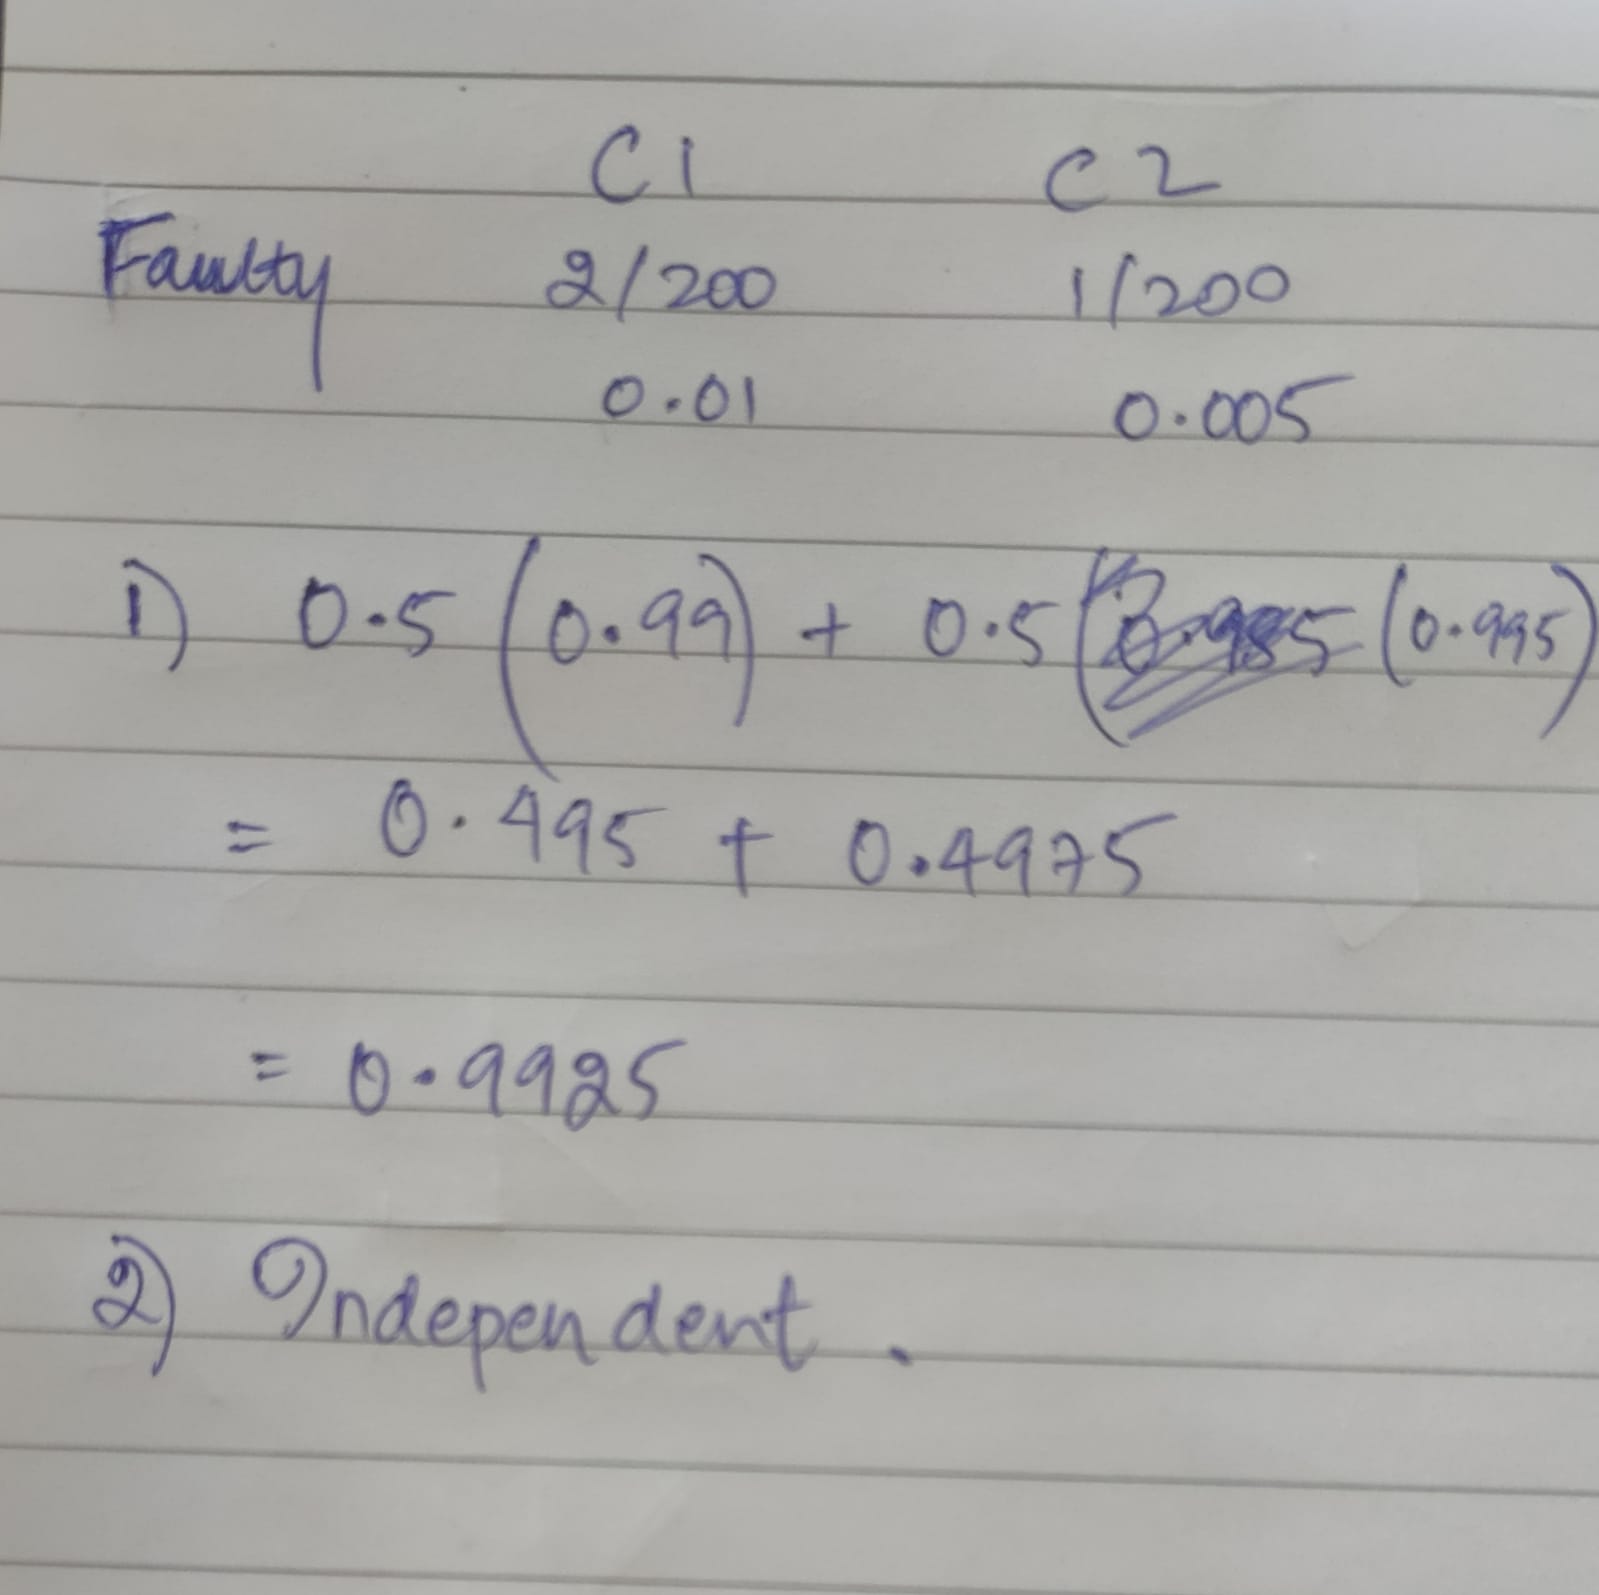 C1 C2
Faulty 2/200 1/200
0.01 0.005
1) 0.5 (0.99) + 0.5 (0.995)
= 0.495 + 0.4975
= 0.9925
2) Independent.